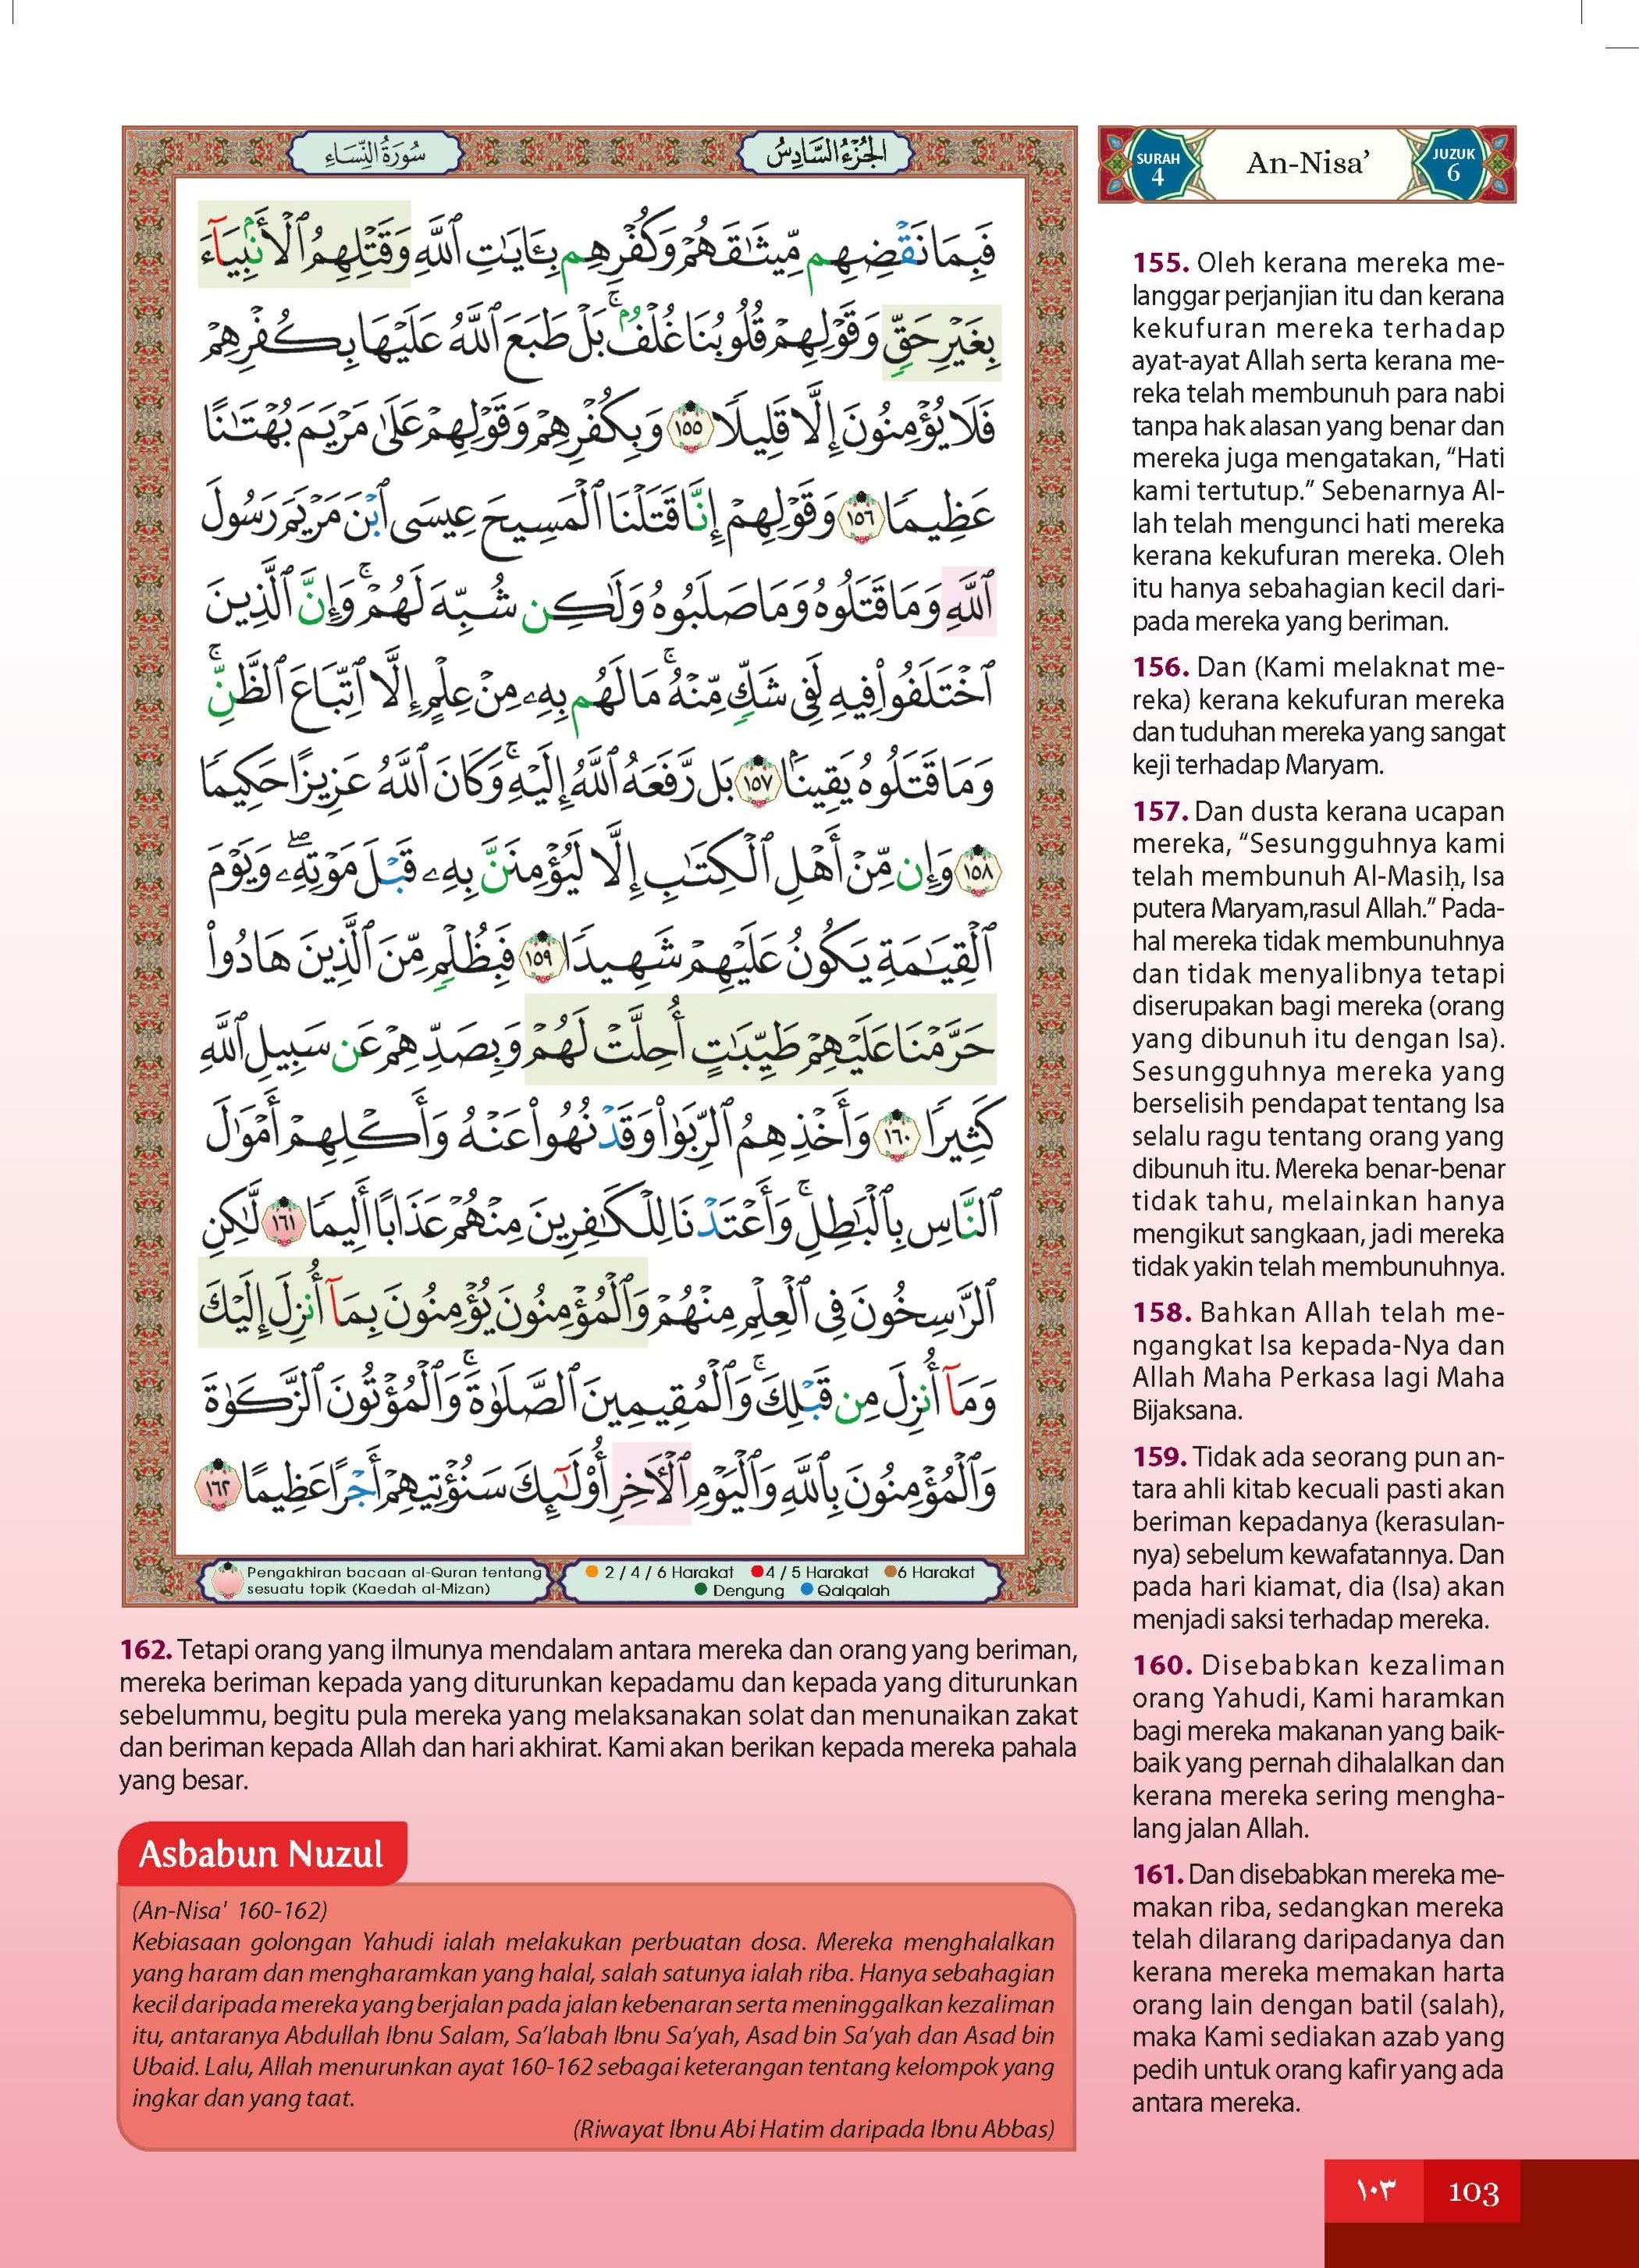 سُورَةُ النِّسَاءِ
الجُزْءُ السَّادِسُ
فَبِمَا نَقْضِهِم مِّيثَٰقَهُمْ وَكُفْرِهِم بِـَٔايَٰتِ ٱللَّهِ وَقَتْلِهِمُ ٱلْأَنۢبِيَآءَ
بِغَيْرِ حَقٍّ وَقَوْلِهِمْ قُلُوبُنَا غُلْفٌۢ ۚ بَلْ طَبَعَ ٱللَّهُ عَلَيْهَا بِكُفْرِهِمْ
فَلَا يُؤْمِنُونَ إِلَّا قَلِيلًا ١٥٥ وَبِكُفْرِهِمْ وَقَوْلِهِمْ عَلَىٰ مَرْيَمَ بُهْتَٰنًا
عَظِيمًا ١٥٦ وَقَوْلِهِمْ إِنَّا قَتَلْنَا ٱلْمَسِيحَ عِيسَى ٱبْنَ مَرْيَمَ رَسُولَ
ٱللَّهِ وَمَا قَتَلُوهُ وَمَا صَلَبُوهُ وَلَٰكِن شُبِّهَ لَهُمْ ۚ وَإِنَّ ٱلَّذِينَ
ٱخْتَلَفُوا۟ فِيهِ لَفِى شَكٍّ مِّنْهُ ۚ مَا لَهُم بِهِۦ مِنْ عِلْمٍ إِلَّا ٱتِّبَاعَ ٱلظَّنِّ ۚ
وَمَا قَتَلُوهُ يَقِينًۢا ١٥٧ بَل رَّفَعَهُ ٱللَّهُ إِلَيْهِ ۚ وَكَانَ ٱللَّهُ عَزِيزًا حَكِيمًا
١٥٨ وَإِن مِّنْ أَهْلِ ٱلْكِتَٰبِ إِلَّا لَيُؤْمِنَنَّ بِهِۦ قَبْلَ مَوْتِهِۦ ۖ وَيَوْمَ
ٱلْقِيَٰمَةِ يَكُونُ عَلَيْهِمْ شَهِيدًا ١٥٩ فَبِظُلْمٍ مِّنَ ٱلَّذِينَ هَادُوا۟
حَرَّمْنَا عَلَيْهِمْ طَيِّبَٰتٍ أُحِلَّتْ لَهُمْ وَبِصَدِّهِمْ عَن سَبِيلِ ٱللَّهِ
كَثِيرًا ١٦٠ وَأَخْذِهِمُ ٱلرِّبَوٰا۟ وَقَدْ نُهُوا۟ عَنْهُ وَأَكْلِهِمْ أَمْوَٰلَ
ٱلنَّاسِ بِٱلْبَٰطِلِ ۚ وَأَعْتَدْنَا لِلْكَٰفِرِينَ مِنْهُمْ عَذَابًا أَلِيمًا ١٦١ لَّٰكِنِ
ٱلرَّٰسِخُونَ فِى ٱلْعِلْمِ مِنْهُمْ وَٱلْمُؤْمِنُونَ يُؤْمِنُونَ بِمَآ أُنزِلَ إِلَيْكَ
وَمَآ أُنزِلَ مِن قَبْلِكَ ۚ وَٱلْمُقِيمِينَ ٱلصَّلَوٰةَ ۚ وَٱلْمُؤْتُونَ ٱلزَّكَوٰةَ
وَٱلْمُؤْمِنُونَ بِٱللَّهِ وَٱلْيَوْمِ ٱلْءَاخِرِ أُو۟لَٰٓئِكَ سَنُؤْتِيهِمْ أَجْرًا عَظِيمًا ١٦٢
Pengakhiran bacaan al-Quran tentang
sesuatu topik (Kaedah al-Mizan)
2 / 4 / 6 Harakat 4 / 5 Harakat 6 Harakat
Dengung Qalqalah
SURAH
4
An-Nisa’
JUZUK
6
155. Oleh kerana mereka me-
langgar perjanjian itu dan kerana
kekufuran mereka terhadap
ayat-ayat Allah serta kerana me-
reka telah membunuh para nabi
tanpa hak alasan yang benar dan
mereka juga mengatakan, “Hati
kami tertutup.” Sebenarnya Al-
lah telah mengunci hati mereka
kerana kekufuran mereka. Oleh
itu hanya sebahagian kecil dari-
pada mereka yang beriman.
156. Dan (Kami melaknat me-
reka) kerana kekufuran mereka
dan tuduhan mereka yang sangat
keji terhadap Maryam.
157. Dan dusta kerana ucapan
mereka, “Sesungguhnya kami
telah membunuh Al-Masiḥ, Isa
putera Maryam,rasul Allah.” Pada-
hal mereka tidak membunuhnya
dan tidak menyalibnya tetapi
diserupakan bagi mereka (orang
yang dibunuh itu dengan Isa).
Sesungguhnya mereka yang
berselisih pendapat tentang Isa
selalu ragu tentang orang yang
dibunuh itu. Mereka benar-benar
tidak tahu, melainkan hanya
mengikut sangkaan, jadi mereka
tidak yakin telah membunuhnya.
158. Bahkan Allah telah me-
ngangkat Isa kepada-Nya dan
Allah Maha Perkasa lagi Maha
Bijaksana.
159. Tidak ada seorang pun an-
tara ahli kitab kecuali pasti akan
beriman kepadanya (kerasulan-
nya) sebelum kewafatannya. Dan
pada hari kiamat, dia (Isa) akan
menjadi saksi terhadap mereka.
160. Disebabkan kezaliman
orang Yahudi, Kami haramkan
bagi mereka makanan yang baik-
baik yang pernah dihalalkan dan
kerana mereka sering mengha-
lang jalan Allah.
161. Dan disebabkan mereka me-
makan riba, sedangkan mereka
telah dilarang daripadanya dan
kerana mereka memakan harta
orang lain dengan batil (salah),
maka Kami sediakan azab yang
pedih untuk orang kafir yang ada
antara mereka.
162. Tetapi orang yang ilmunya mendalam antara mereka dan orang yang beriman,
mereka beriman kepada yang diturunkan kepadamu dan kepada yang diturunkan
sebelummu, begitu pula mereka yang melaksanakan solat dan menunaikan zakat
dan beriman kepada Allah dan hari akhirat. Kami akan berikan kepada mereka pahala
yang besar.
Asbabun Nuzul
(An-Nisa' 160-162)
Kebiasaan golongan Yahudi ialah melakukan perbuatan dosa. Mereka menghalalkan
yang haram dan mengharamkan yang halal, salah satunya ialah riba. Hanya sebahagian
kecil daripada mereka yang berjalan pada jalan kebenaran serta meninggalkan kezaliman
itu, antaranya Abdullah Ibnu Salam, Sa’labah Ibnu Sa’yah, Asad bin Sa’yah dan Asad bin
Ubaid. Lalu, Allah menurunkan ayat 160-162 sebagai keterangan tentang kelompok yang
ingkar dan yang taat.
(Riwayat Ibnu Abi Hatim daripada Ibnu Abbas)
١٠٣ 103